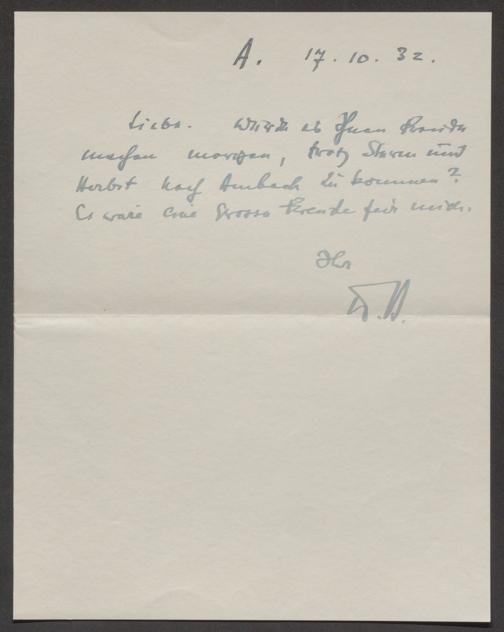 A. 17.10.32.
Liebe. Würde es Ihnen Freude
machen morgen, trotz Sturm und
Herbst nach Ambach zu kommen?
Es wäre eine grosse Freude für mich.
Ihr